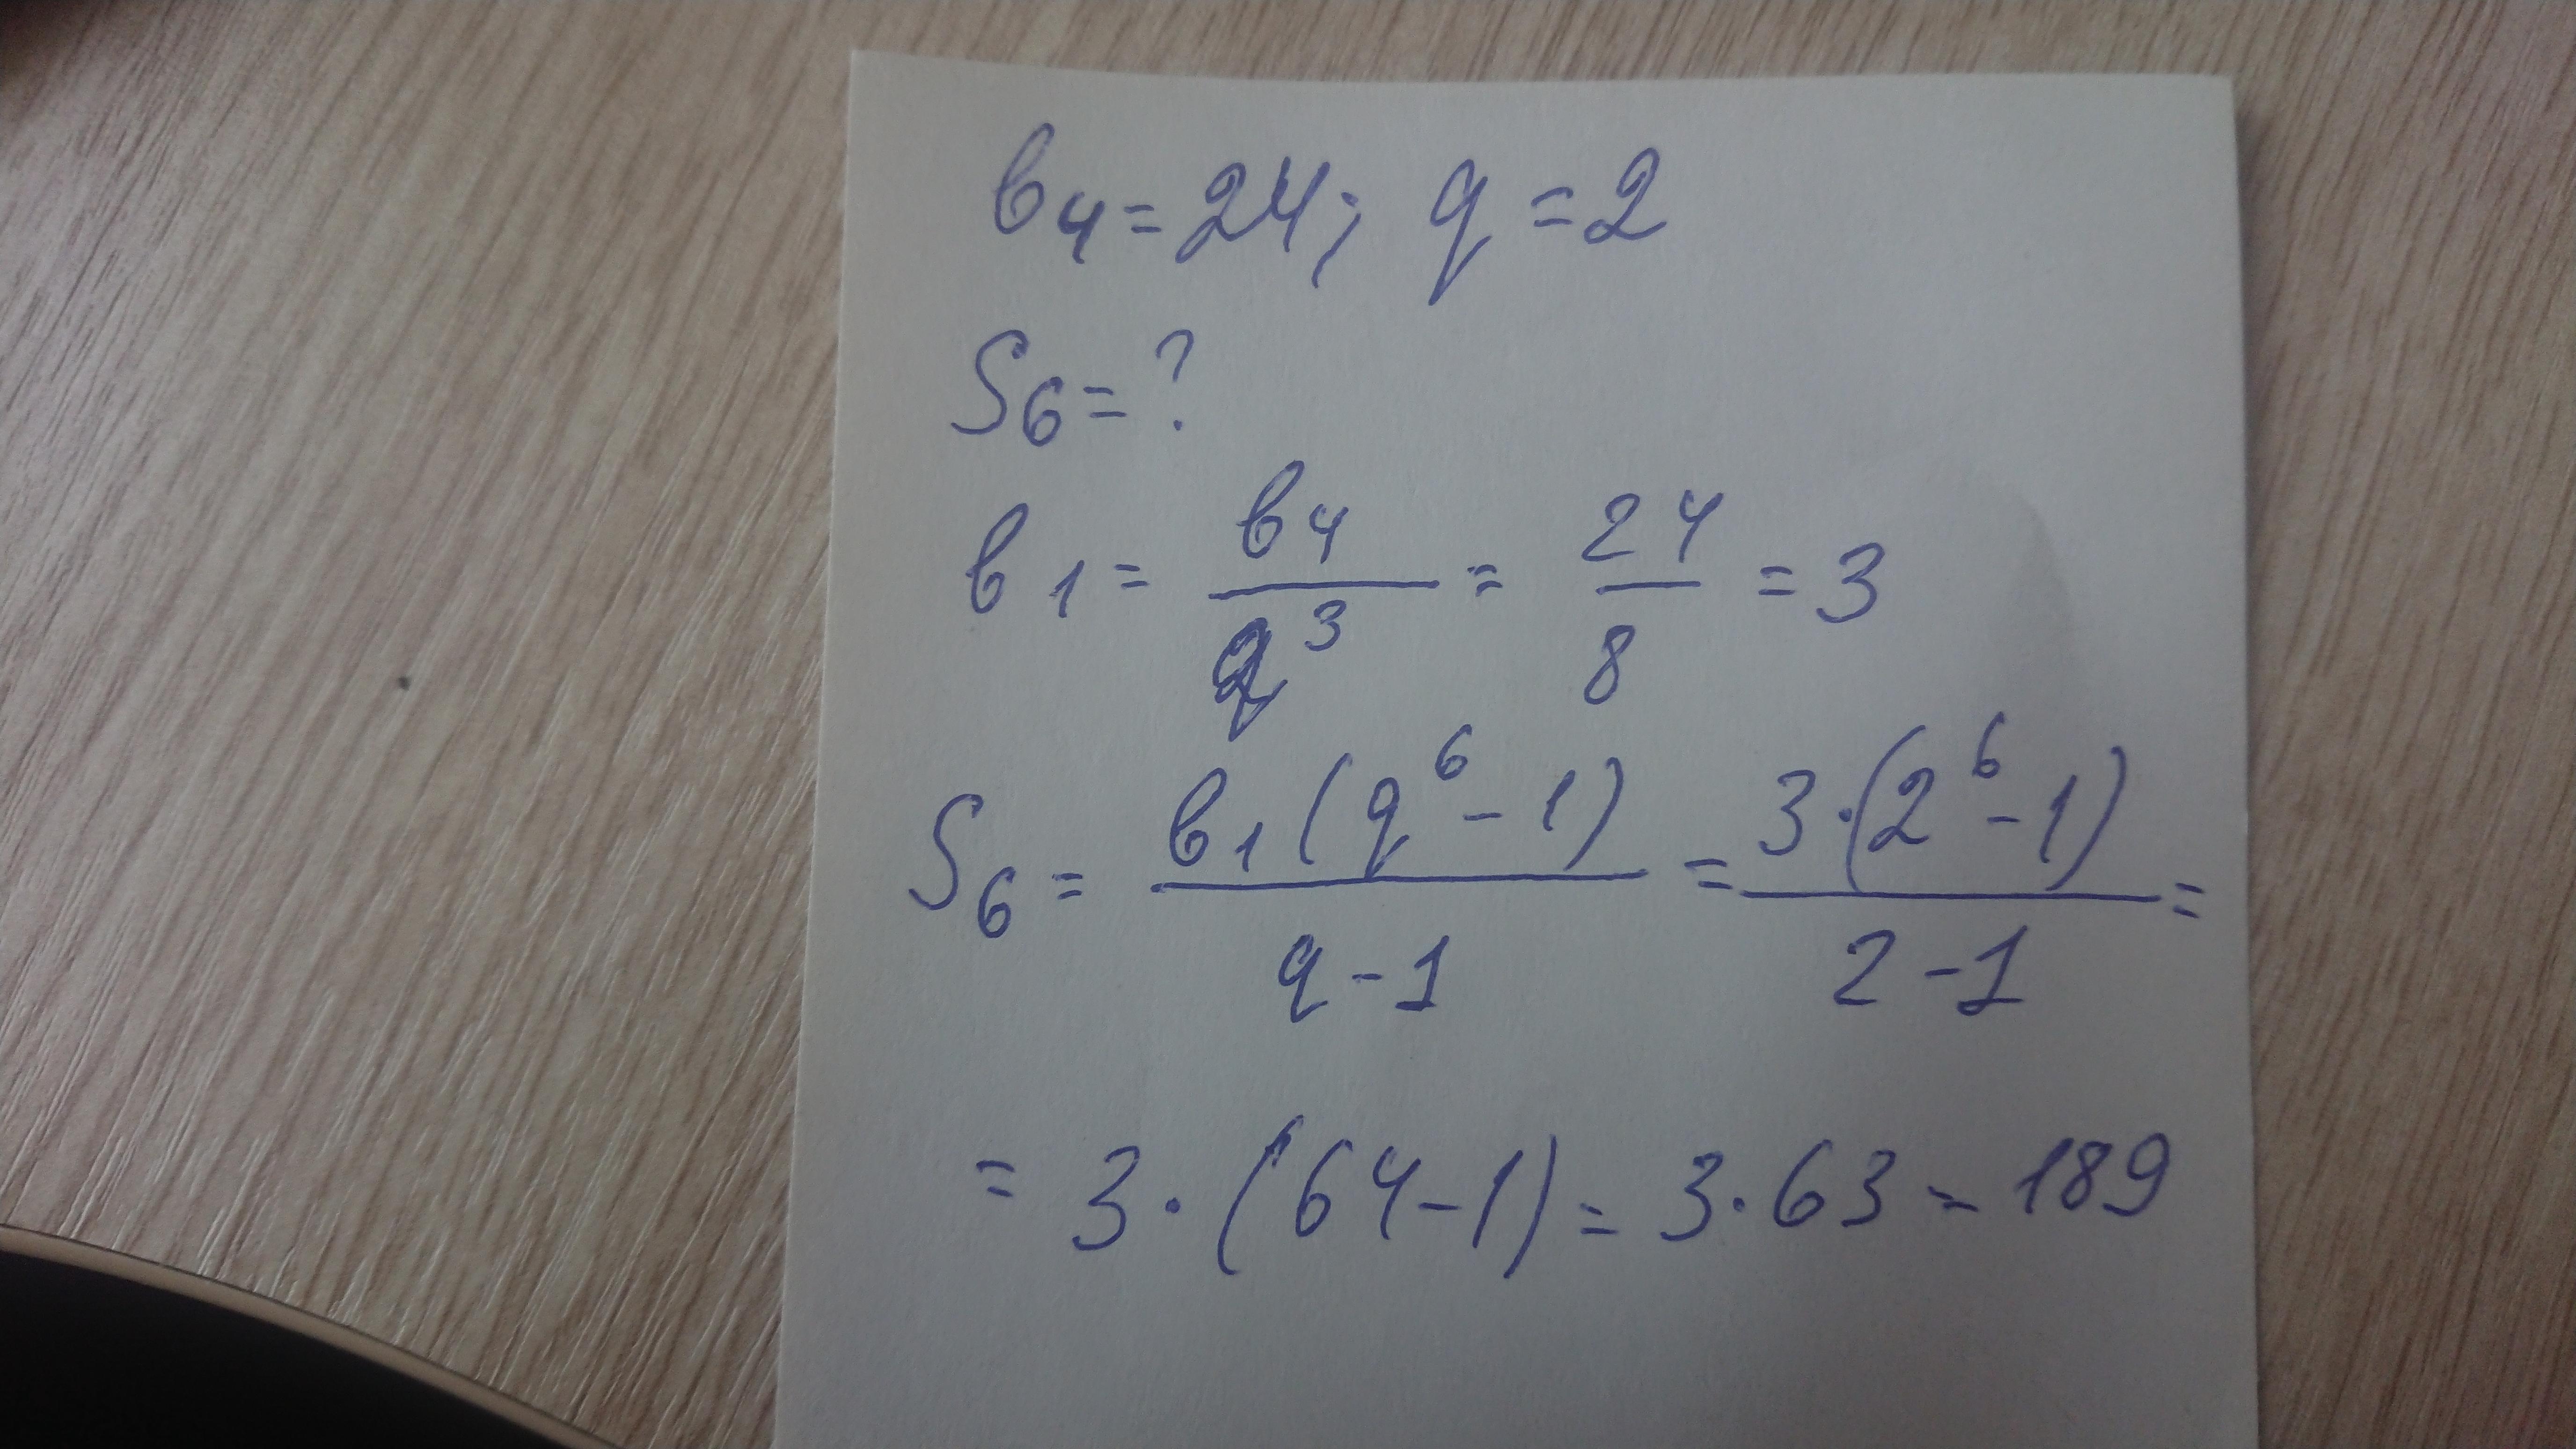 b₄ = 24; q = 2
S₆ = ?
b₁ = b₄/q³ = 24/8 = 3
S₆ = b₁(q⁶ - 1)/(q - 1) = 3·(2⁶ - 1)/(2 - 1) =
= 3·(64 - 1) = 3·63 = 189